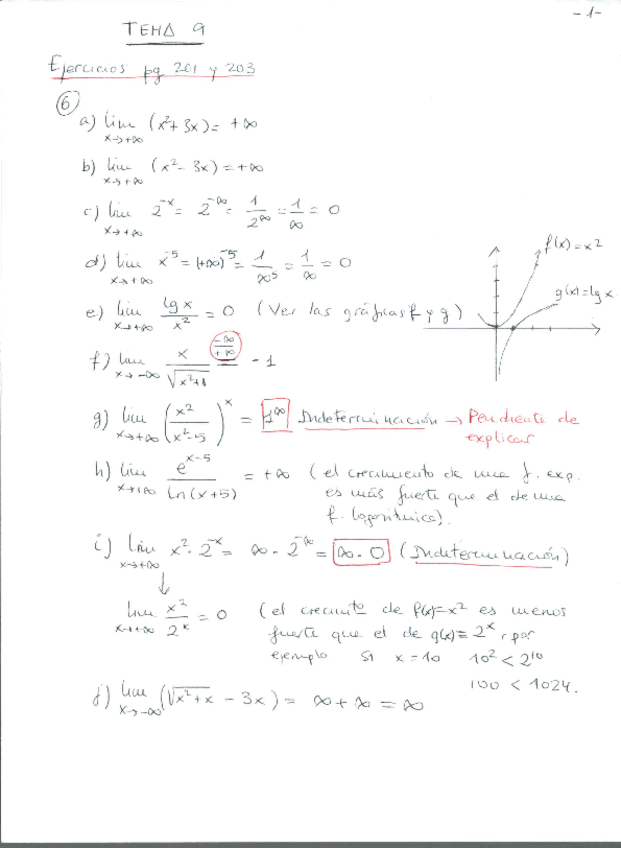 -1-
TEMA 9
Ejercicios pg 201 y 203
6
a) lim x→+∞ (x²+3x) = +∞
b) lim x→+∞ (x²-3x) = +∞
c) lim x→+∞ 2^-x = 2^-∞ = 1/2^∞ = 1/∞ = 0
d) lim x→+∞ x^-5 = (+∞)^-5 = 1/∞^5 = 1/∞ = 0
f(x)=x²
g(x)=lg x
e) lim x→+∞ lg x/x² = 0 (Ver las gráficas f y g)
f) lim x→-∞ x/√(x²+1) = -∞/+∞ = -1
g) lim x→+∞ (x²/(x²-5))^x = 1^∞ Indeterminación → Pendiente de
explicar
h) lim x→+∞ e^(x-5)/ln(x+5) = +∞ (el crecimiento de una f. exp.
es más fuerte que el de una
f. logarítmica).
i) lim x→+∞ x²·2^-x = ∞·2^-∞ = ∞·0 (Indeterminación)
↓
lim x→+∞ x²/2^x = 0 (el crecimto de f(x)=x² es menos
fuerte que el de g(x)=2^x, por
ejemplo si x=10 10²<2^10
100<1024.
j) lim x→-∞ (√(x²+x) - 3x) = ∞+∞ = ∞